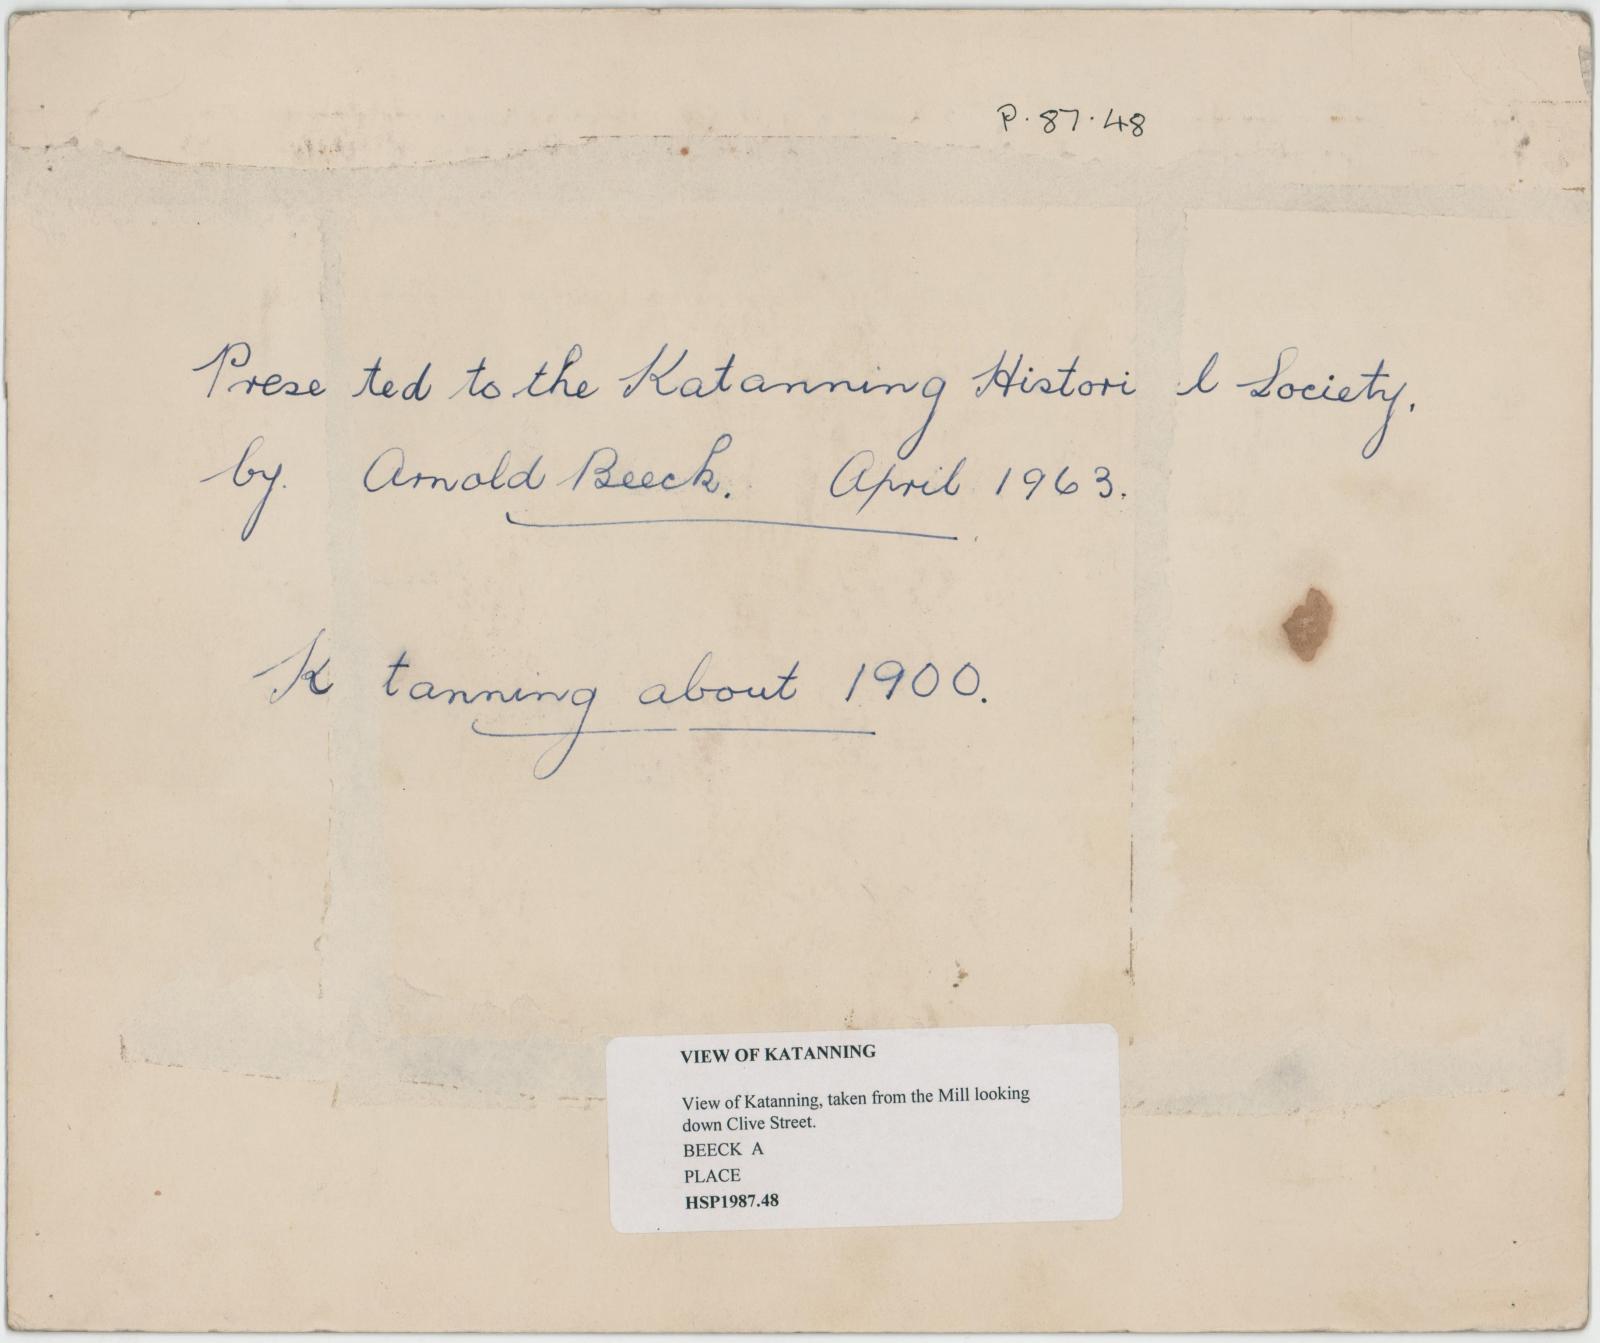 P.87.48
Prese ted to the Katanning Histori l Society.
by. Arnold Beeck. April 1963.
K tanning about 1900.
VIEW OF KATANNING
View of Katanning, taken from the Mill looking
down Clive Street.
BEECK A
PLACE
HSP1987.48